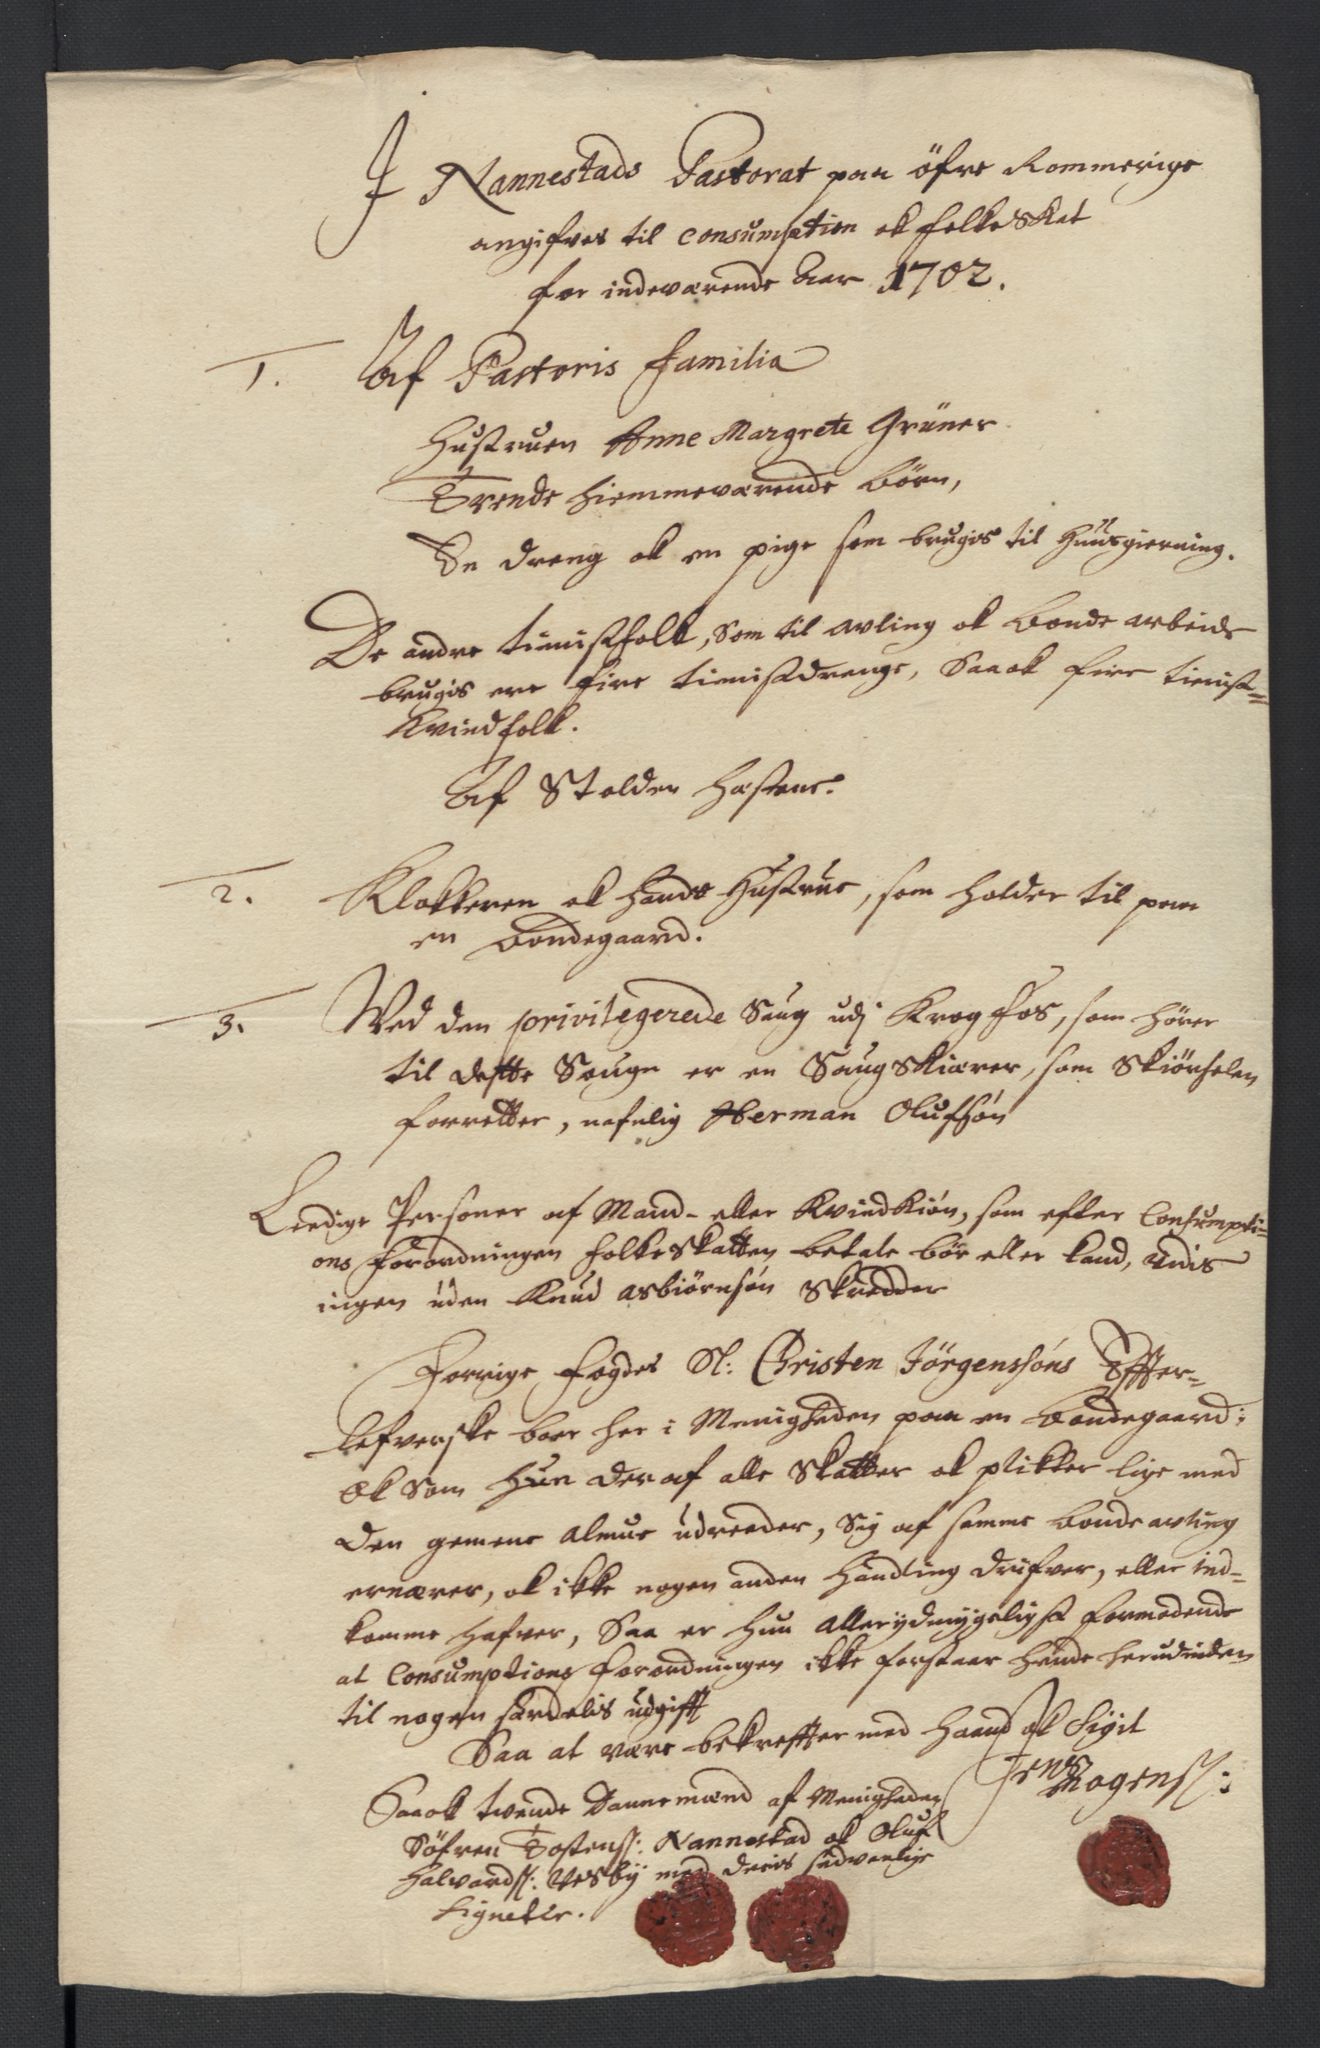 I Nannestads Pastorat paa öfre Rommerige
angifves til Consumption ok folkeskat
for indeværende Aar 1702.
1. Af Pastoris Familia
Hustruen Anne Margrete Grüner
Trende hiemmeværende börn,
En dreng ok en pige som brugis til Huusgierning.
De andre tienistfolk, som til avling ok bonde arbeide
brugis ere fire tienistdrenge, Saa ok fire tienist=
Kvindfolk.
Af Stolden hestene.
2. Klokkeren ok hands Hustrue, som holder til paa
en bondegaard.
3. Wed den privilegerede Saug udj Krogfos, som hörer
til dette Sougn er en Saugskiærer, som Skiörselen
forretter, nefnlig Herman Olufsön
Leedige Personer af Mand- eller Kvindkiön, som effter Consumpti=
ons Forordningen folkeskatten betale bör eller kand, vidis
ingen uden Knud Asbiörnsön Skredder
Forrige fogdes Sl: Christen Jörgensöns Effter=
lefverske boer her i Menigheden paa en bondegaard;
Ok som Hun deraf alle Skatter ok plikter lige med
den gemene Almue udreeder, Sig af samme bonde avling
ernærer, ok ikke nogen anden handling drifver, eller ind=
komme hafver, Saa er hun allerydmygeligst formodende
at Consumptions Forordningen ikke forstaar hende herudinden
til nogen særdelis udgifft
Saa at være bekreffter med haand ok Sigil
Jens Mogenss:
Saa ok tvende Dannemænd af Menigheden
Söfren Tostenss: Nannestad ok Oluf
Halvordss: Vesby med deris sedvanlige
Signeter.